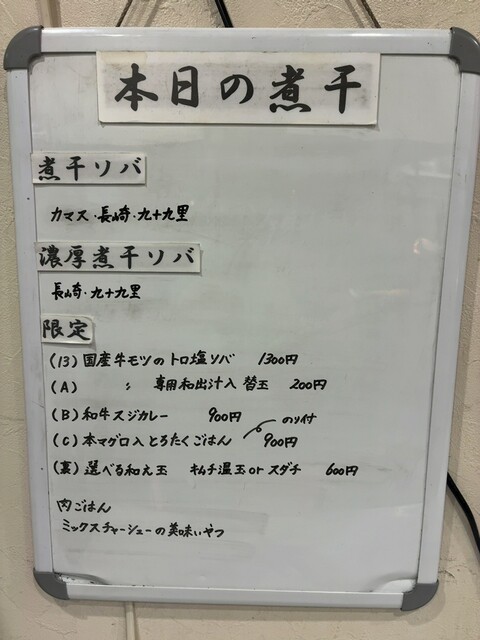 本日の煮干
煮干ソバ
カマス・長崎・九十九里
濃厚煮干ソバ
長崎・九十九里
限定
(13) 国産牛モツのトロ塩ソバ 1300円
(A) 〃 専用和出汁入 替玉 200円
(B) 和牛スジカレー 900円
のり付
(C) 本マグロ入とろたくごはん 900円
(裏) 選べる和え玉 キムチ温玉orスダチ 600円
肉ごはん
ミックスチャーシューの美味いやつ